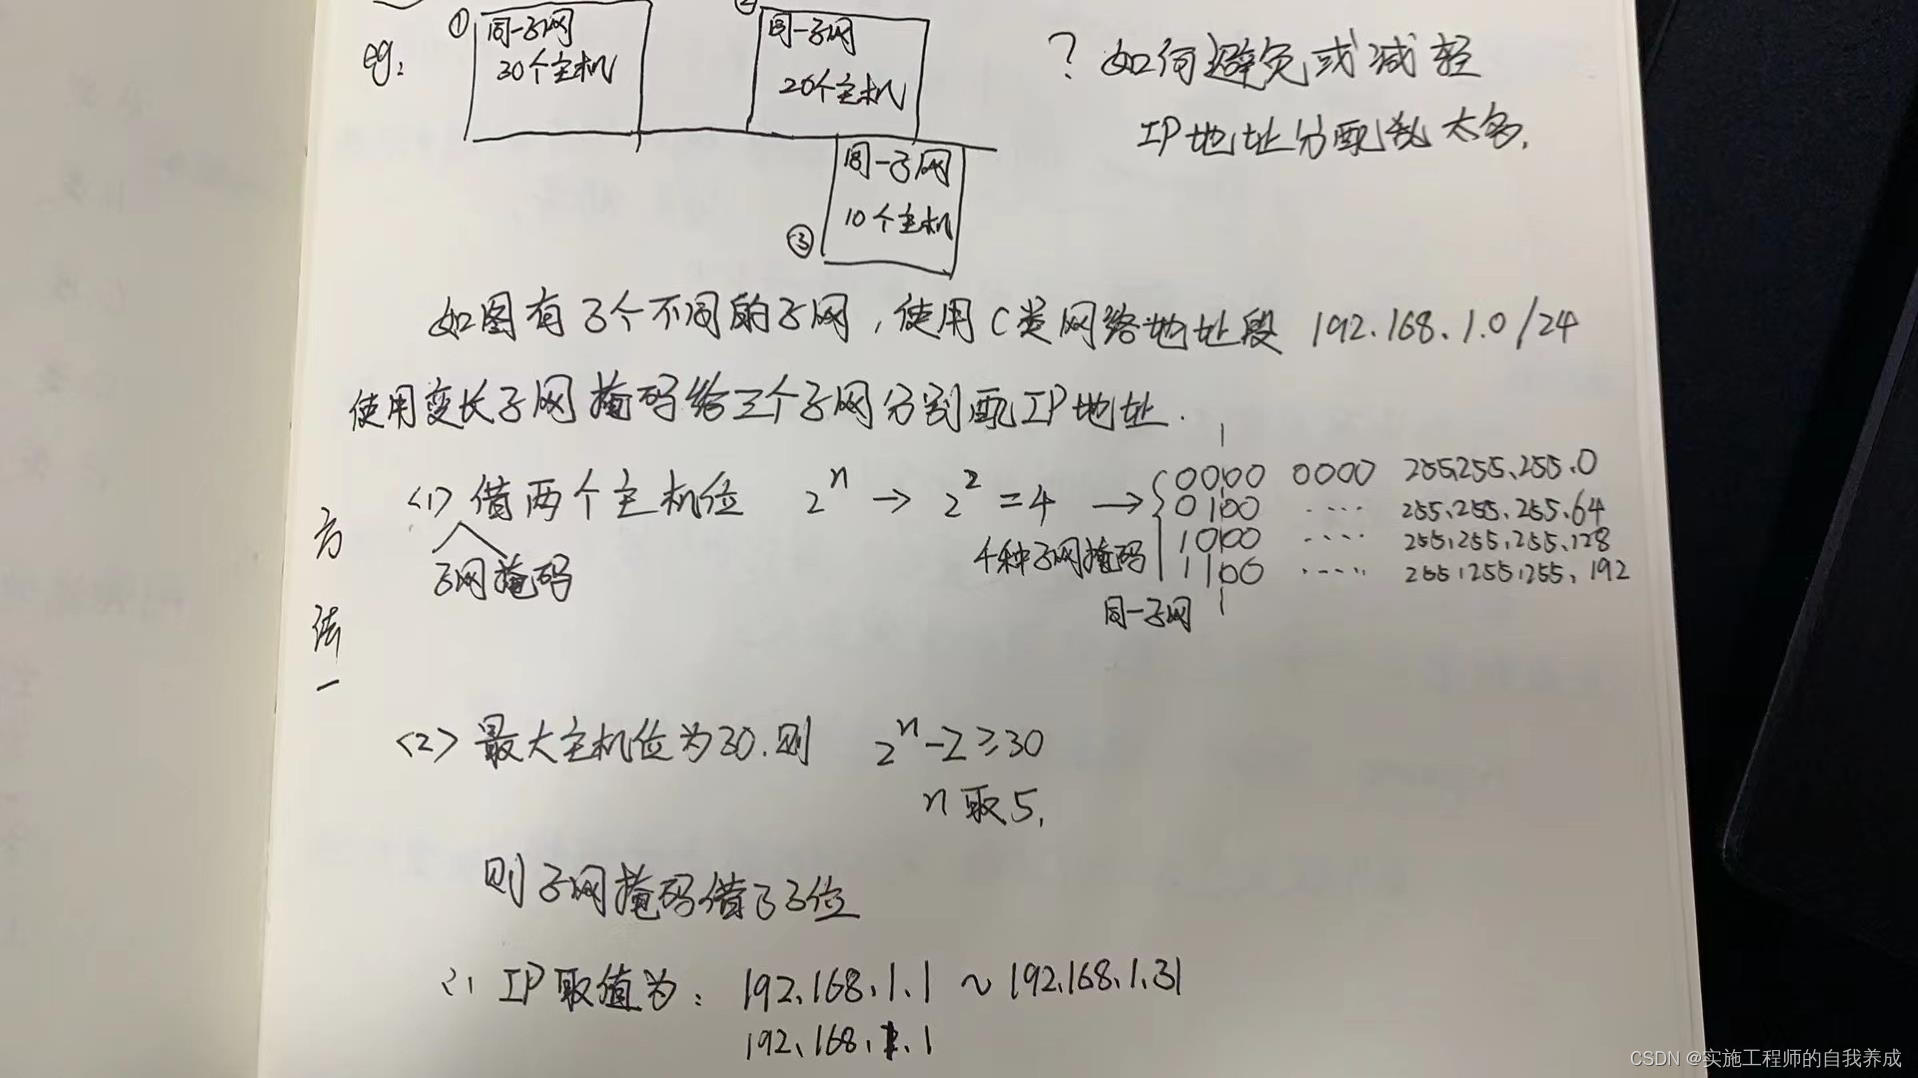 eg:
① 同一子网
30个主机
② 同一子网
20个主机
③ 同一子网
10个主机
? 如何避免或减轻
IP地址分配乱太多.
如图有3个不同的子网,使用C类网络地址段 192.168.1.0/24
使用变长子网掩码给三个子网分别配IP地址.
方法一
<1> 借两个主机位 2^n → 2^2 = 4 →
子网掩码
4种子网掩码
0000 0000 255.255.255.0
0100 ···· 255.255.255.64
1000 ···· 255.255.255.128
1100 ···· 255.255.255.192
同一子网
<2> 最大主机位为30.则 2^n-2≥30
n取5,
则子网掩码借了3位
∴ IP取值为: 192.168.1.1 ~ 192.168.1.31
192.168.1.1
CSDN @实施工程师的自我养成